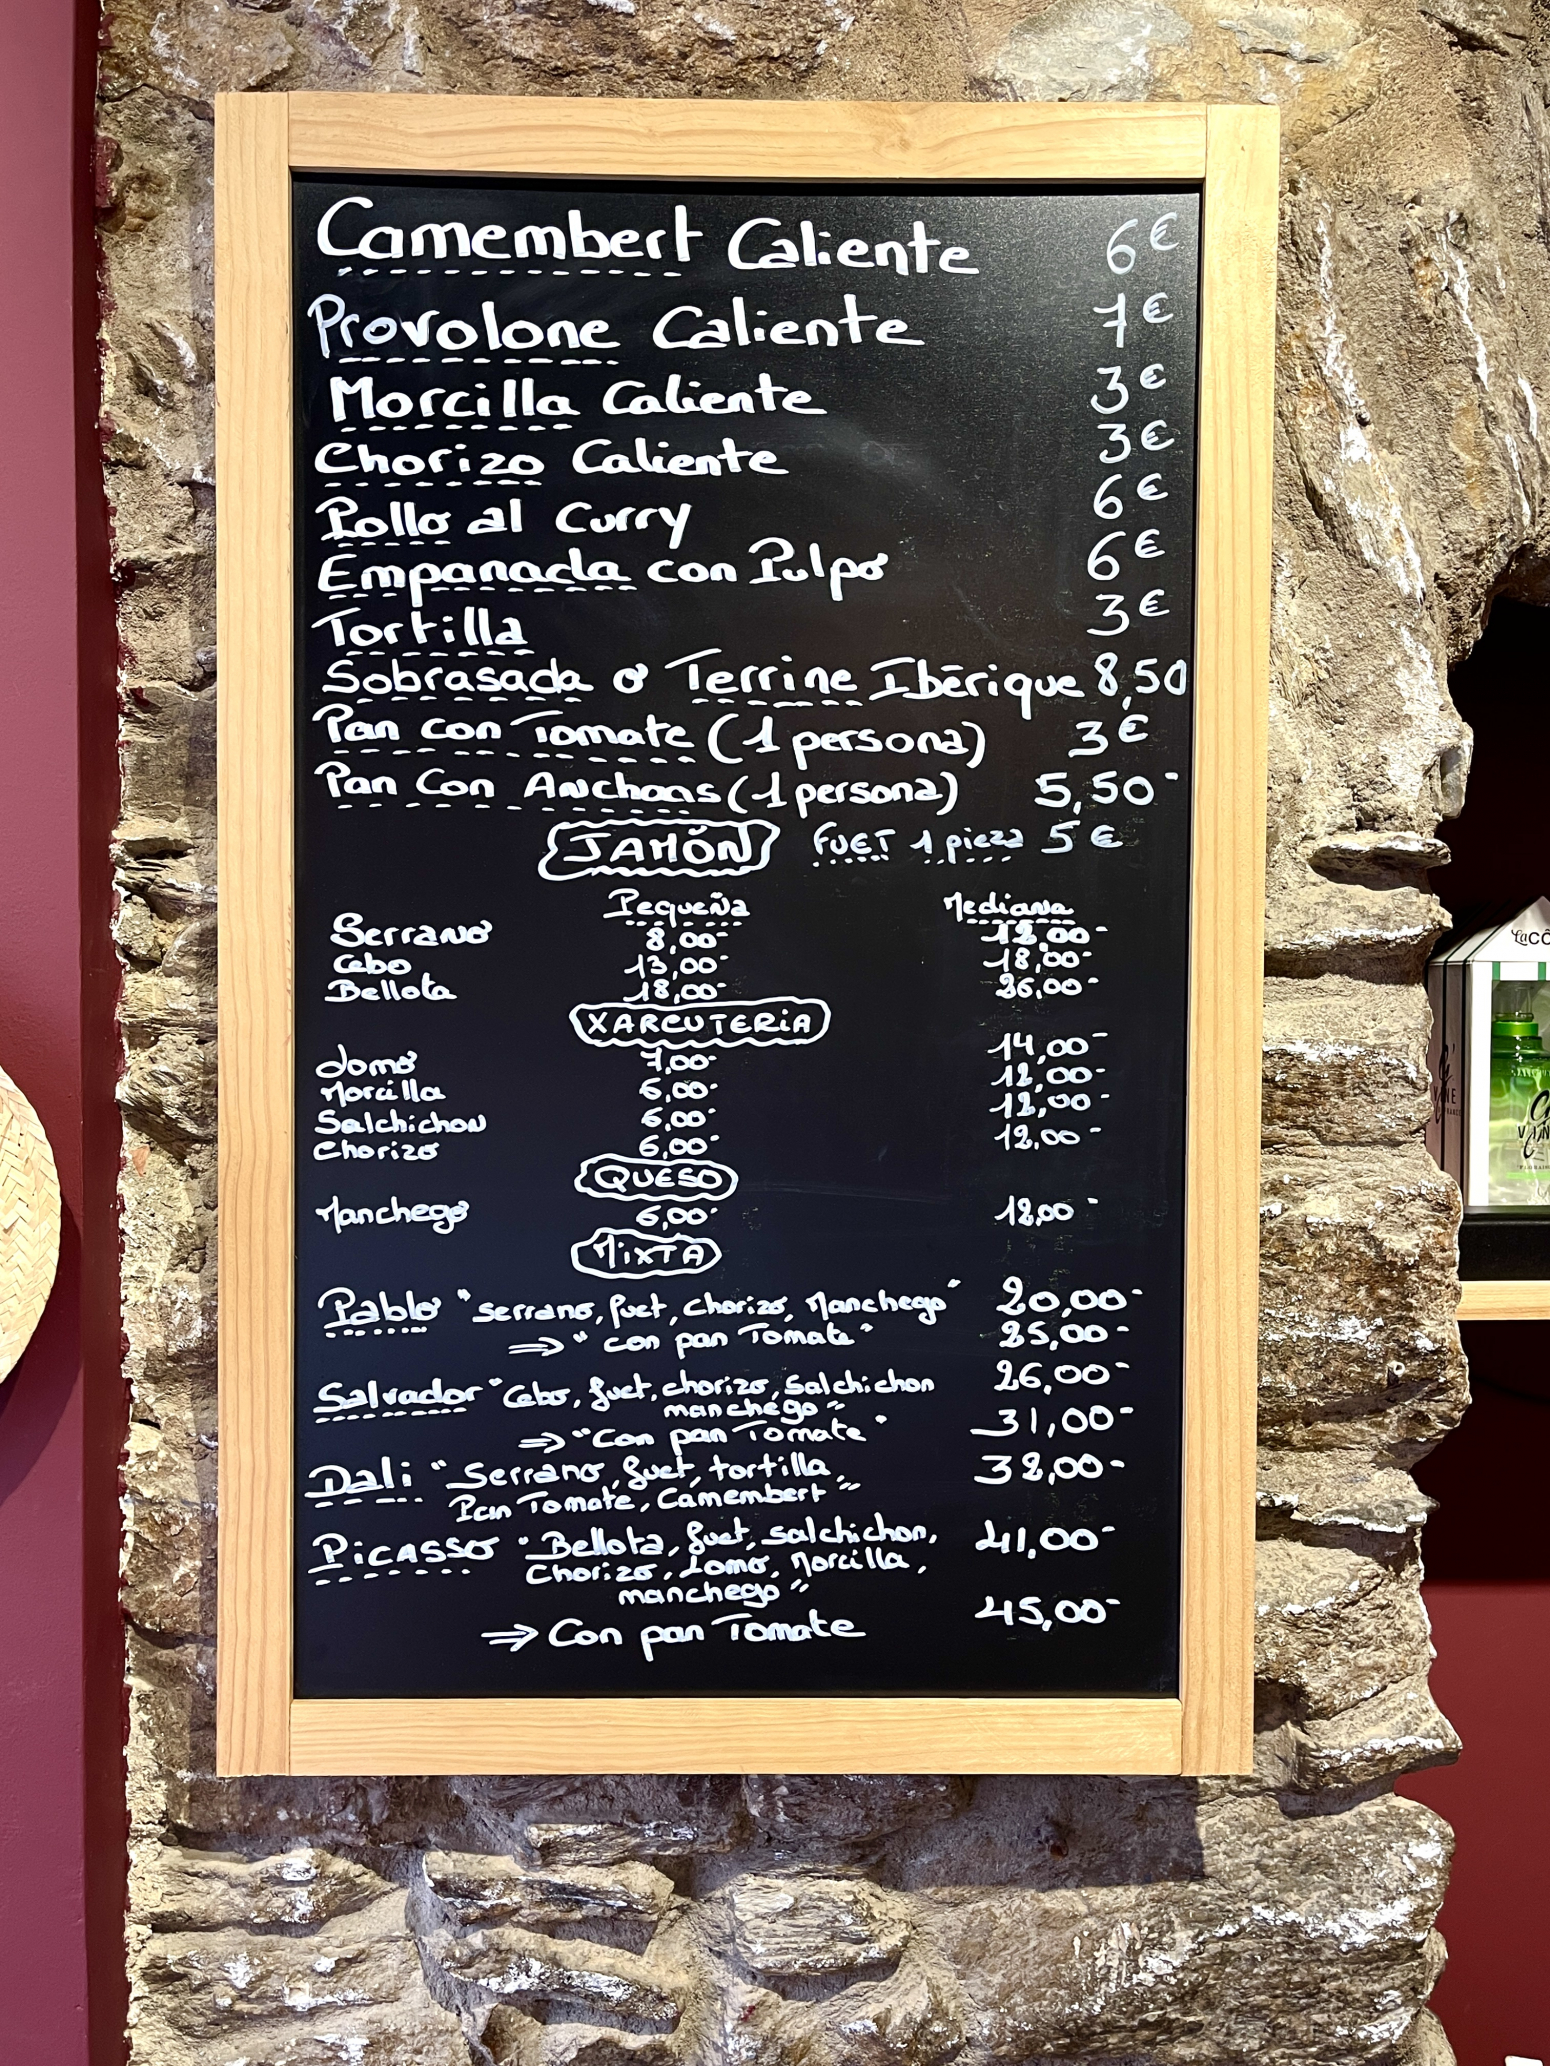 Camembert Caliente 6€
Provolone Caliente 7€
Morcilla Caliente 3€
Chorizo Caliente 3€
Pollo al Curry 6€
Empanada con Pulpo 6€
Tortilla 3€
Sobrasada o Terrine Ibérique 8,50
Pan con Tomate (1 persona) 3€
Pan Con Anchoas (1 persona) 5,50-
JAMÓN FUET 1 pieza 5€
Pequeña Mediana
Serrano 8,00- 12,00-
Cebo 13,00- 18,00-
Bellota 18,00- 26,00-
XARCUTERiA
Lomo 7,00- 14,00-
Morcilla 6,00- 12,00-
Salchichon 6,00- 12,00-
Chorizo 6,00- 12,00-
QUESO
Manchego 6,00- 12,00-
MiXTA
Pablo "serrano, fuet, chorizo, Manchego" 20,00-
⇒ "con pan Tomate" 25,00-
Salvador "Cebo, fuet, chorizo, salchichon 26,00-
manchego"
⇒ "Con pan Tomate" 31,00-
Dali "Serrano, fuet, tortilla, 32,00-
Pan Tomate, Camembert"
PiCASSO "Bellota, fuet, salchichon, 41,00-
Chorizo, Lomo, Morcilla,
manchego"
⇒ Con pan Tomate 45,00-
LaCÔ